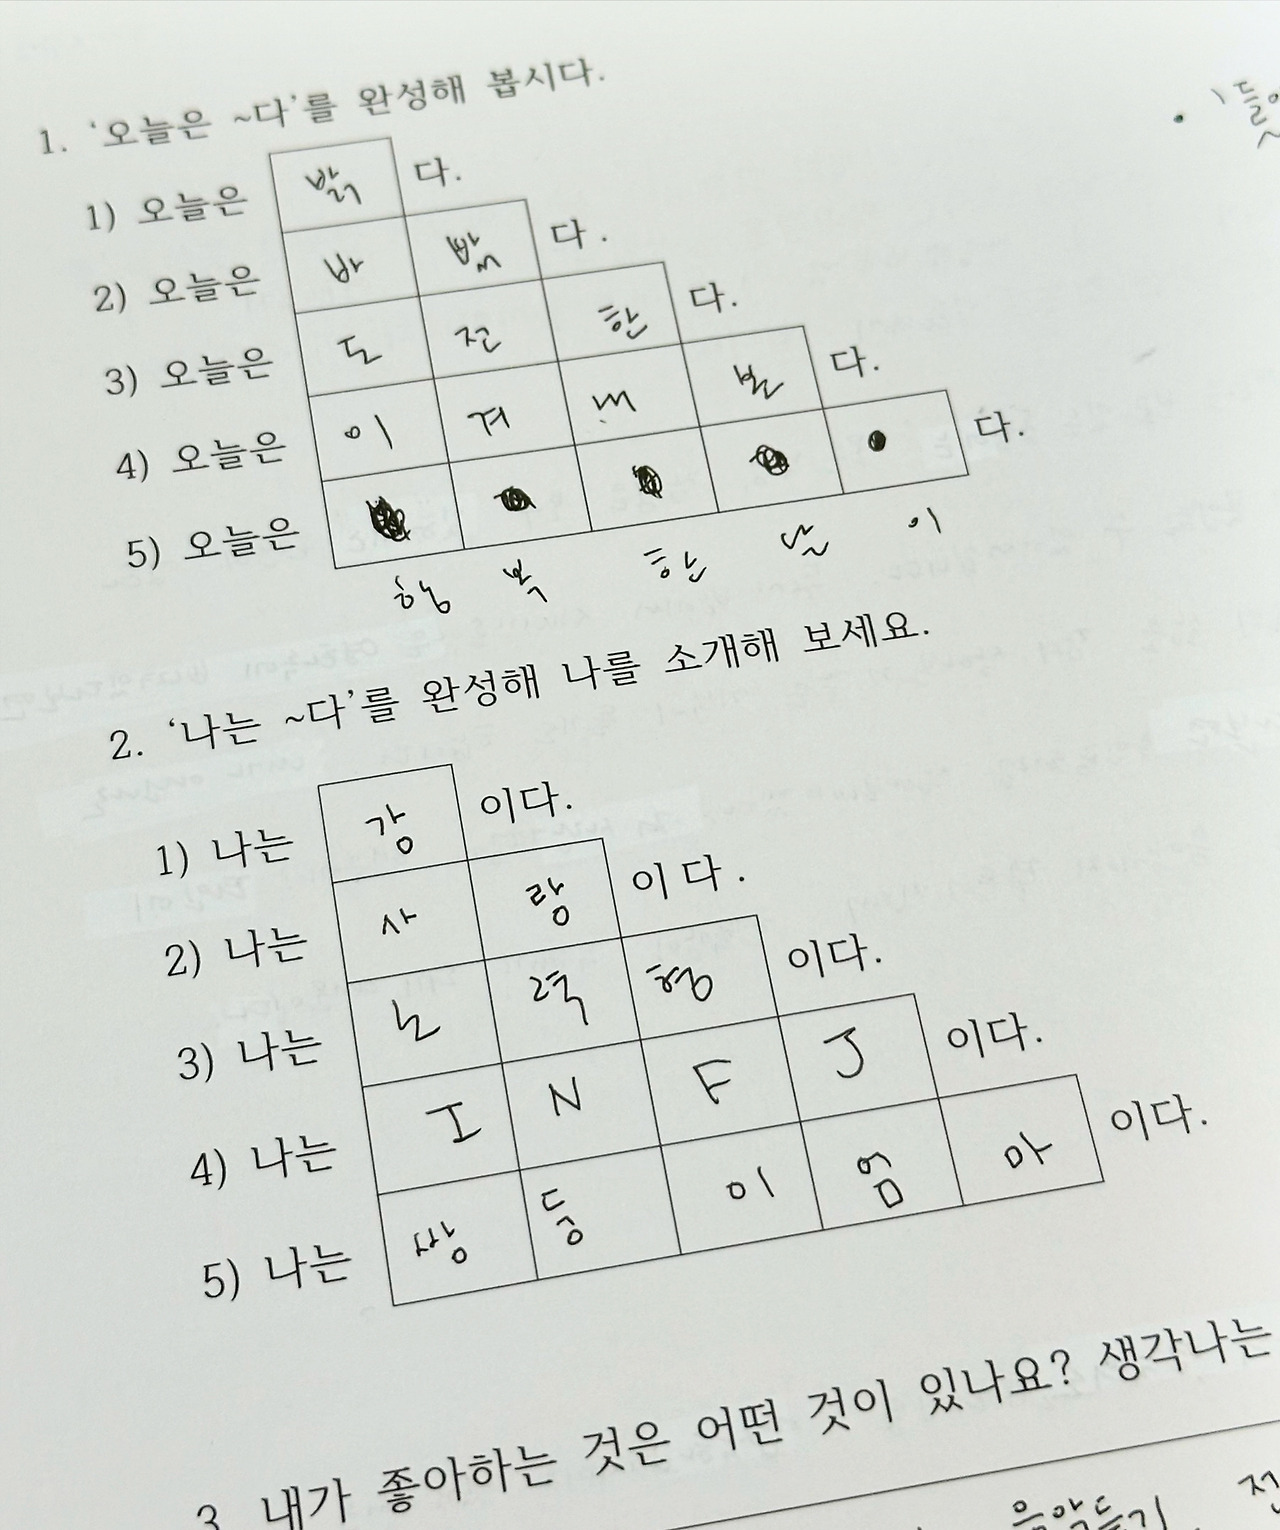 1. '오늘은 ~다'를 완성해 봅시다.
1) 오늘은 밝 다.
2) 오늘은 바 빴 다.
3) 오늘은 도 전 한 다.
4) 오늘은 이 겨 내 본 다.
5) 오늘은 다.
행 복 한 날 이
2. '나는 ~다'를 완성해 나를 소개해 보세요.
1) 나는 강 이다.
2) 나는 사 랑 이다.
3) 나는 노 력 형 이다.
4) 나는 I N F J 이다.
5) 나는 쌍 둥 이 엄 마 이다.
3. 내가 좋아하는 것은 어떤 것이 있나요? 생각나는
음악듣기